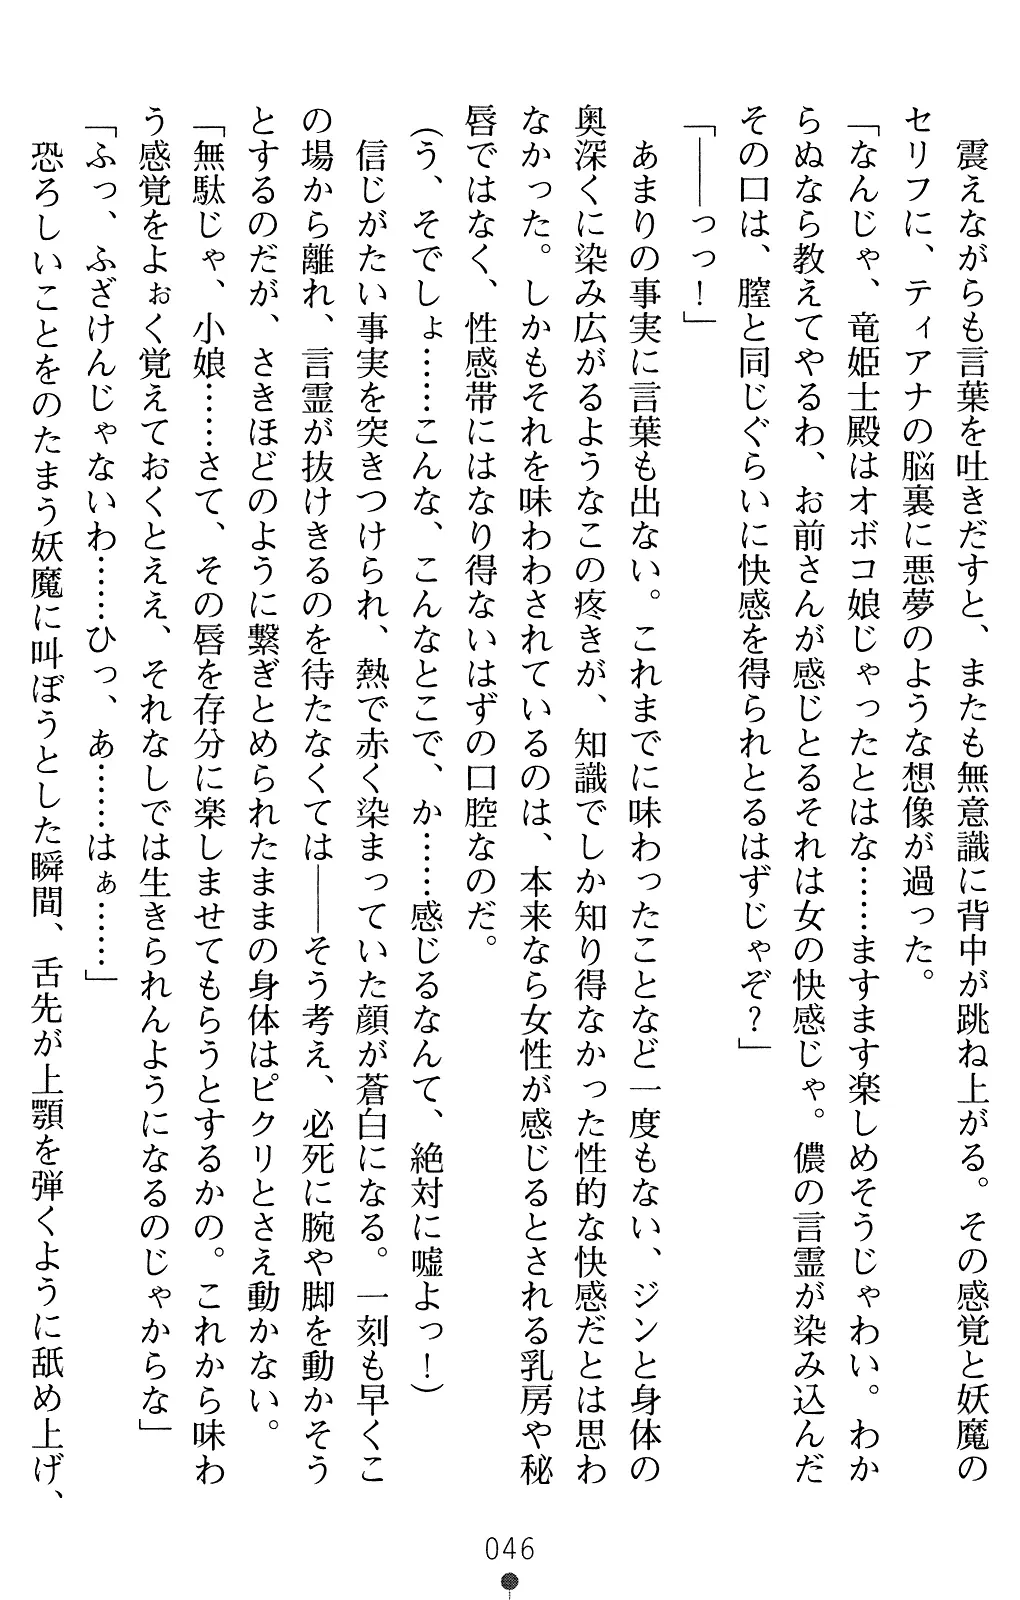 震えながらも言葉を吐きだすと、またも無意識に背中が跳ね上がる。その感覚と妖魔の
セリフに、ティアナの脳裏に悪夢のような想像が過った。
「なんじゃ、竜姫士殿はオボコ娘じゃったとはな……ますます楽しめそうじゃわい。わか
らぬなら教えてやるわ、お前さんが感じとるそれは女の快感じゃ。儂の言霊が染み込んだ
その口は、膣と同じぐらいに快感を得られとるはずじゃぞ？」
「――っっ！」
あまりの事実に言葉も出ない。これまでに味わったことなど一度もない、ジンと身体の
奥深くに染み広がるようなこの疼きが、知識でしか知り得なかった性的な快感だとは思わ
なかった。しかもそれを味わわされているのは、本来なら女性が感じるとされる乳房や秘
唇ではなく、性感帯にはなり得ないはずの口腔なのだ。
（う、そでしょ……こんな、こんなとこで、か……感じるなんて、絶対に嘘よっ！）
信じがたい事実を突きつけられ、熱で赤く染まっていた顔が蒼白になる。一刻も早くこ
の場から離れ、言霊が抜けきるのを待たなくては――そう考え、必死に腕や脚を動かそう
とするのだが、さきほどのように繋ぎとめられたままの身体はピクリとさえ動かない。
「無駄じゃ、小娘……さて、その唇を存分に楽しませてもらうとするかの。これから味わ
う感覚をよぉく覚えておくとええ、それなしでは生きられんようになるのじゃからな」
「ふっ、ふざけんじゃないわ……ひっ、あ……はぁ……」
恐ろしいことをのたまう妖魔に叫ぼうとした瞬間、舌先が上顎を弾くように舐め上げ、
046